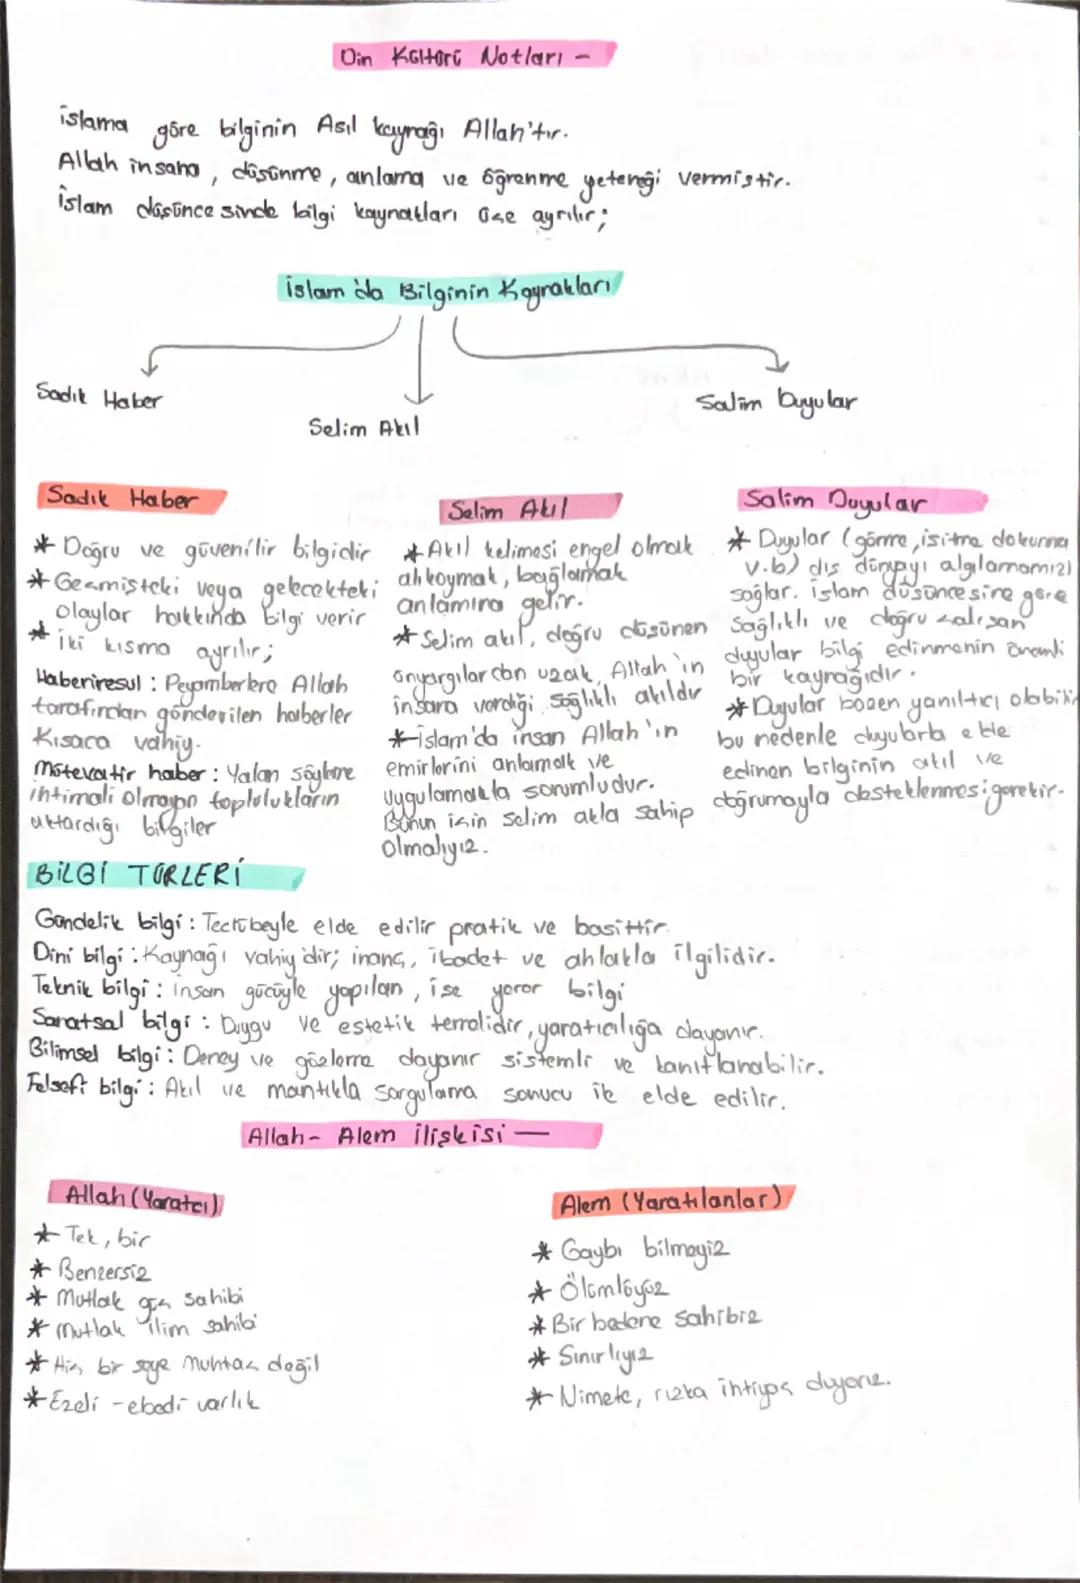 Din Kültürü Notları -
İslama göre bilginin Asıl kaynağı Allah'tır.
Allah insana, düşünme, anlama ve öğrenme yeteneği vermiştir.
İslam düşüncesinde bilgi kaynakları üçe ayrılır;
İslam'da Bilginin Kaynakları
Sadık Haber
Selim Akıl
Salim Duyular
Sadık Haber
* Doğru ve güvenilir bilgidir
* Geçmişteki veya gelecekteki
olaylar hakkında bilgi verir
* İki kısma ayrılır;
Haberiresul : Peyamberlere Allah
tarafından gönderilen haberler
Kısaca vahiy.
Mütevatir haber : Yalan söyleme
ihtimali olmayan toplulukların
aktardığı bilgiler
Selim Akıl
* Akıl kelimesi engel olmak
alıkoymak, bağlamak
anlamına gelir.
* Selim akıl, doğru düşünen
önyargılardan uzak, Allah'ın
insana verdiği sağlıklı akıldır
* İslam'da insan Allah'ın
emirlerini anlamak ve
uygulamakla sorumludur.
Bunun için selim akla sahip
olmalıyız.
Salim Duyular
* Duyular (görme, işitme dokunma
v.b) dış dünyayı algılamamızı
sağlar. İslam düşüncesine göre
Sağlıklı ve doğru çalışan
duyular bilgi edinmenin önemli
bir kaynağıdır.
* Duyular bazen yanıltıcı olabilir
bu nedenle duyularla elde
edinen bilginin akıl ve
doğrumayla desteklenmesi gerekir.
BİLGİ TÜRLERİ
Gündelik bilgi : Tecrübeyle elde edilir pratik ve basittir.
Dini bilgi : Kaynağı vahiy'dir; inanç, ibadet ve ahlakla ilgilidir.
Teknik bilgi : insan gücüyle yapılan, işe yarar bilgi
Sanatsal bilgi : Duygu ve estetik temelidir, yaratıcılığa dayanır.
Bilimsel bilgi : Deney ve gözleme dayanır sistemli ve kanıtlanabilir.
Felsefi bilgi : Akıl ve mantıkla sorgulama sonucu ile elde edilir.
Allah - Alem ilişkisi —
Allah (Yaratıcı)
* Tek, bir
* Benzersiz
* Mutlak güç sahibi
* Mutlak ilim sahibi
* Hiç bir şeye muhtaç değil
* Ezeli - ebedi varlık
Alem (Yaratılanlar)
* Gaybı bilmeyiz
* Ölümlüyüz
* Bir bedene sahibiz
* Sınırlıyız
* Nimete, rızka ihtiyaç duyarız.